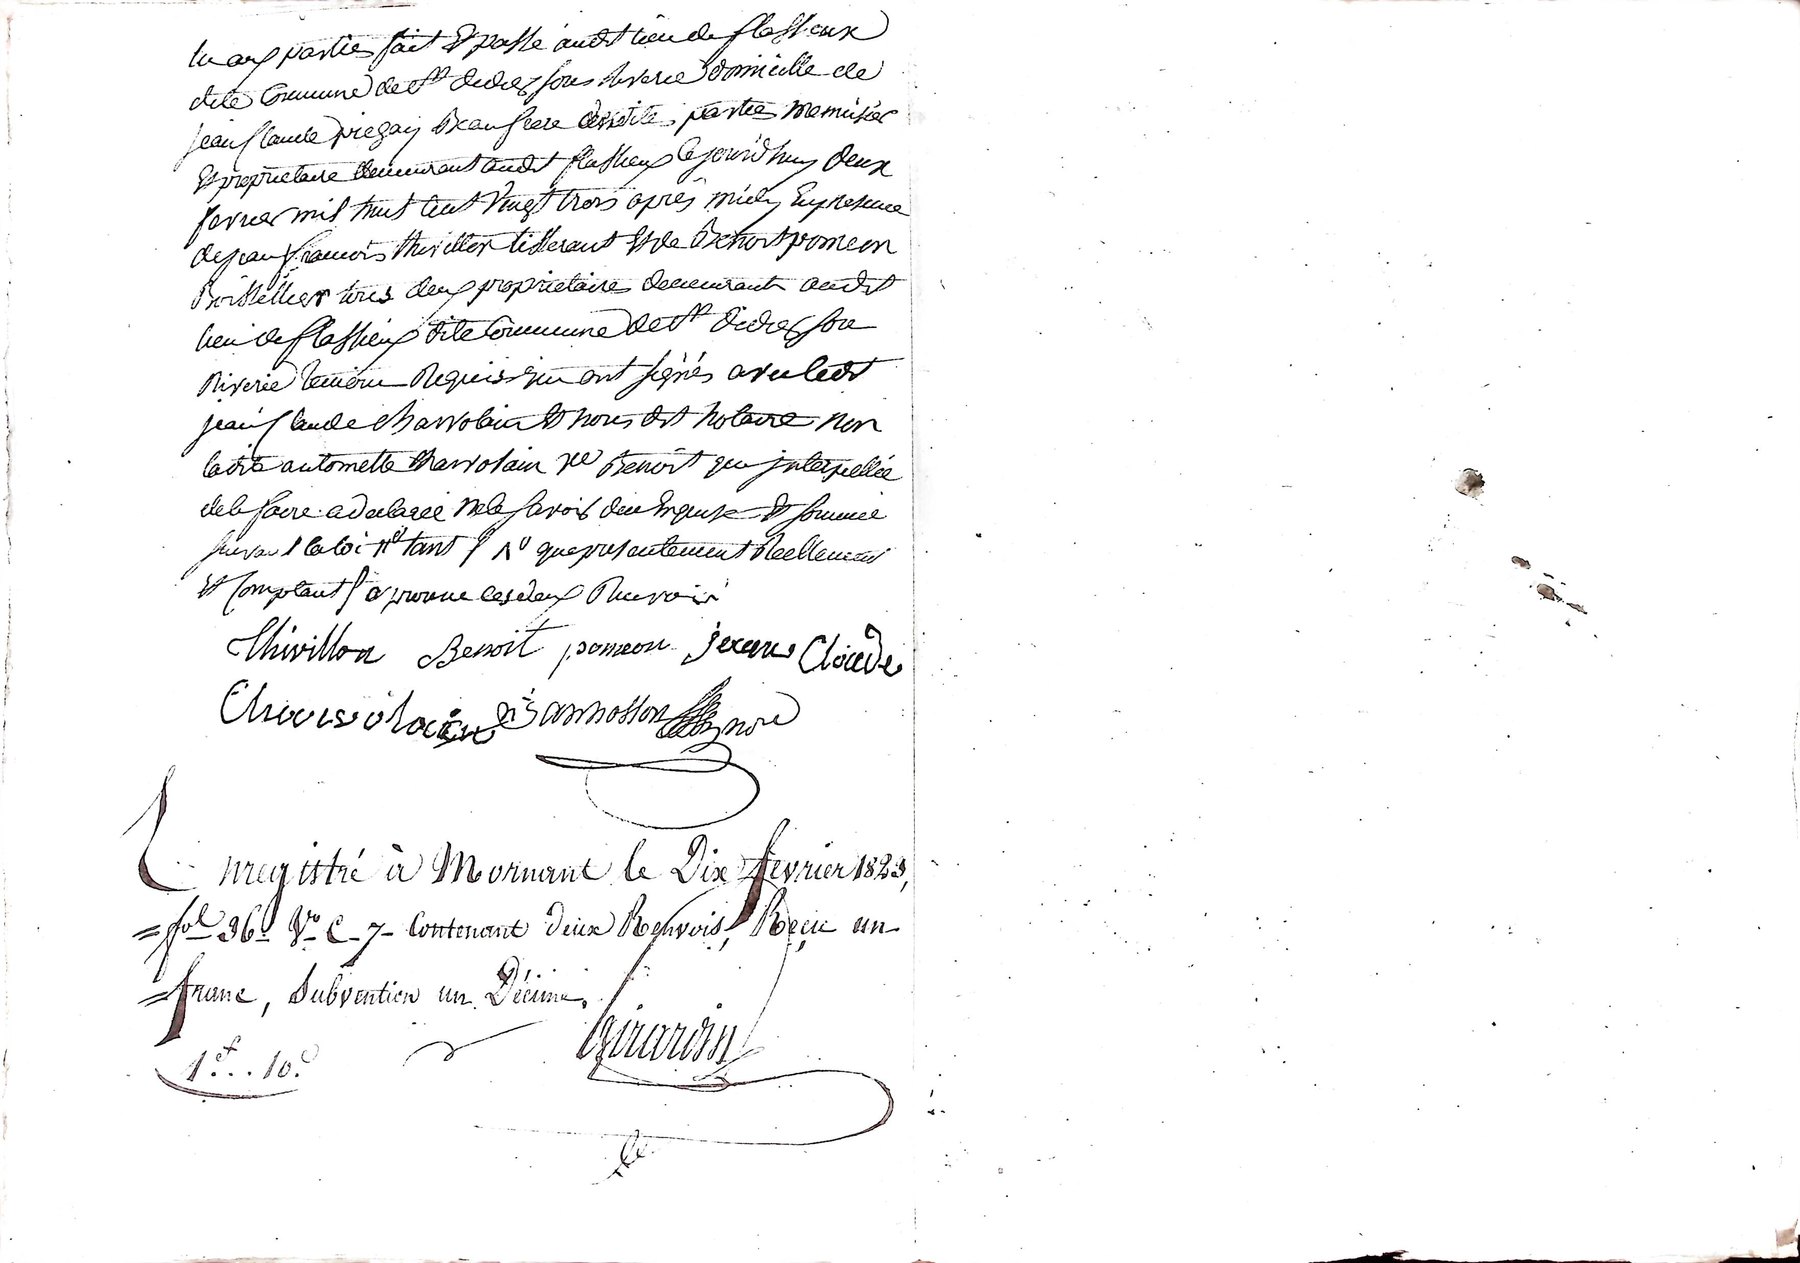 lu aux parties fait et passé audt lieu de flassieux
dite Commune de St didier sous Riverie domicille de
jean Claude piegay Beaufrere desdites parties menuisier
et proprietaire demeurant audt flassieux le jourd'huy deux
fevrier mil huit cent vingt trois après midy En presence
de jean francois thivillon tisserant et de Benoit pomeon
Boissellier tous deux proprietaires demeurants audt
lieu de flassieux dite Commune de St didier sou
Riverie temoins Requis qui ont signés avec ledt
jean Claude charvolain et nous dt notaire non
ladite antoinette charvolain ve Benoit qui interpellée
de le faire a declaree ne le savoir de ce Enquise et sommée
suivant la loi no tant / no que presentement Reellement
et Comptant / aprouve les deux Renvois
thivillon Benoit pomeon jean Claude
Charvolain nre
Enregistré à Mornant le Dix fevrier 1823,
= fol 36 Vo C. 7 Contenant deux Renvois, Reçu un
= franc, Subvention un Décime.
1f.. 10c
Girardin